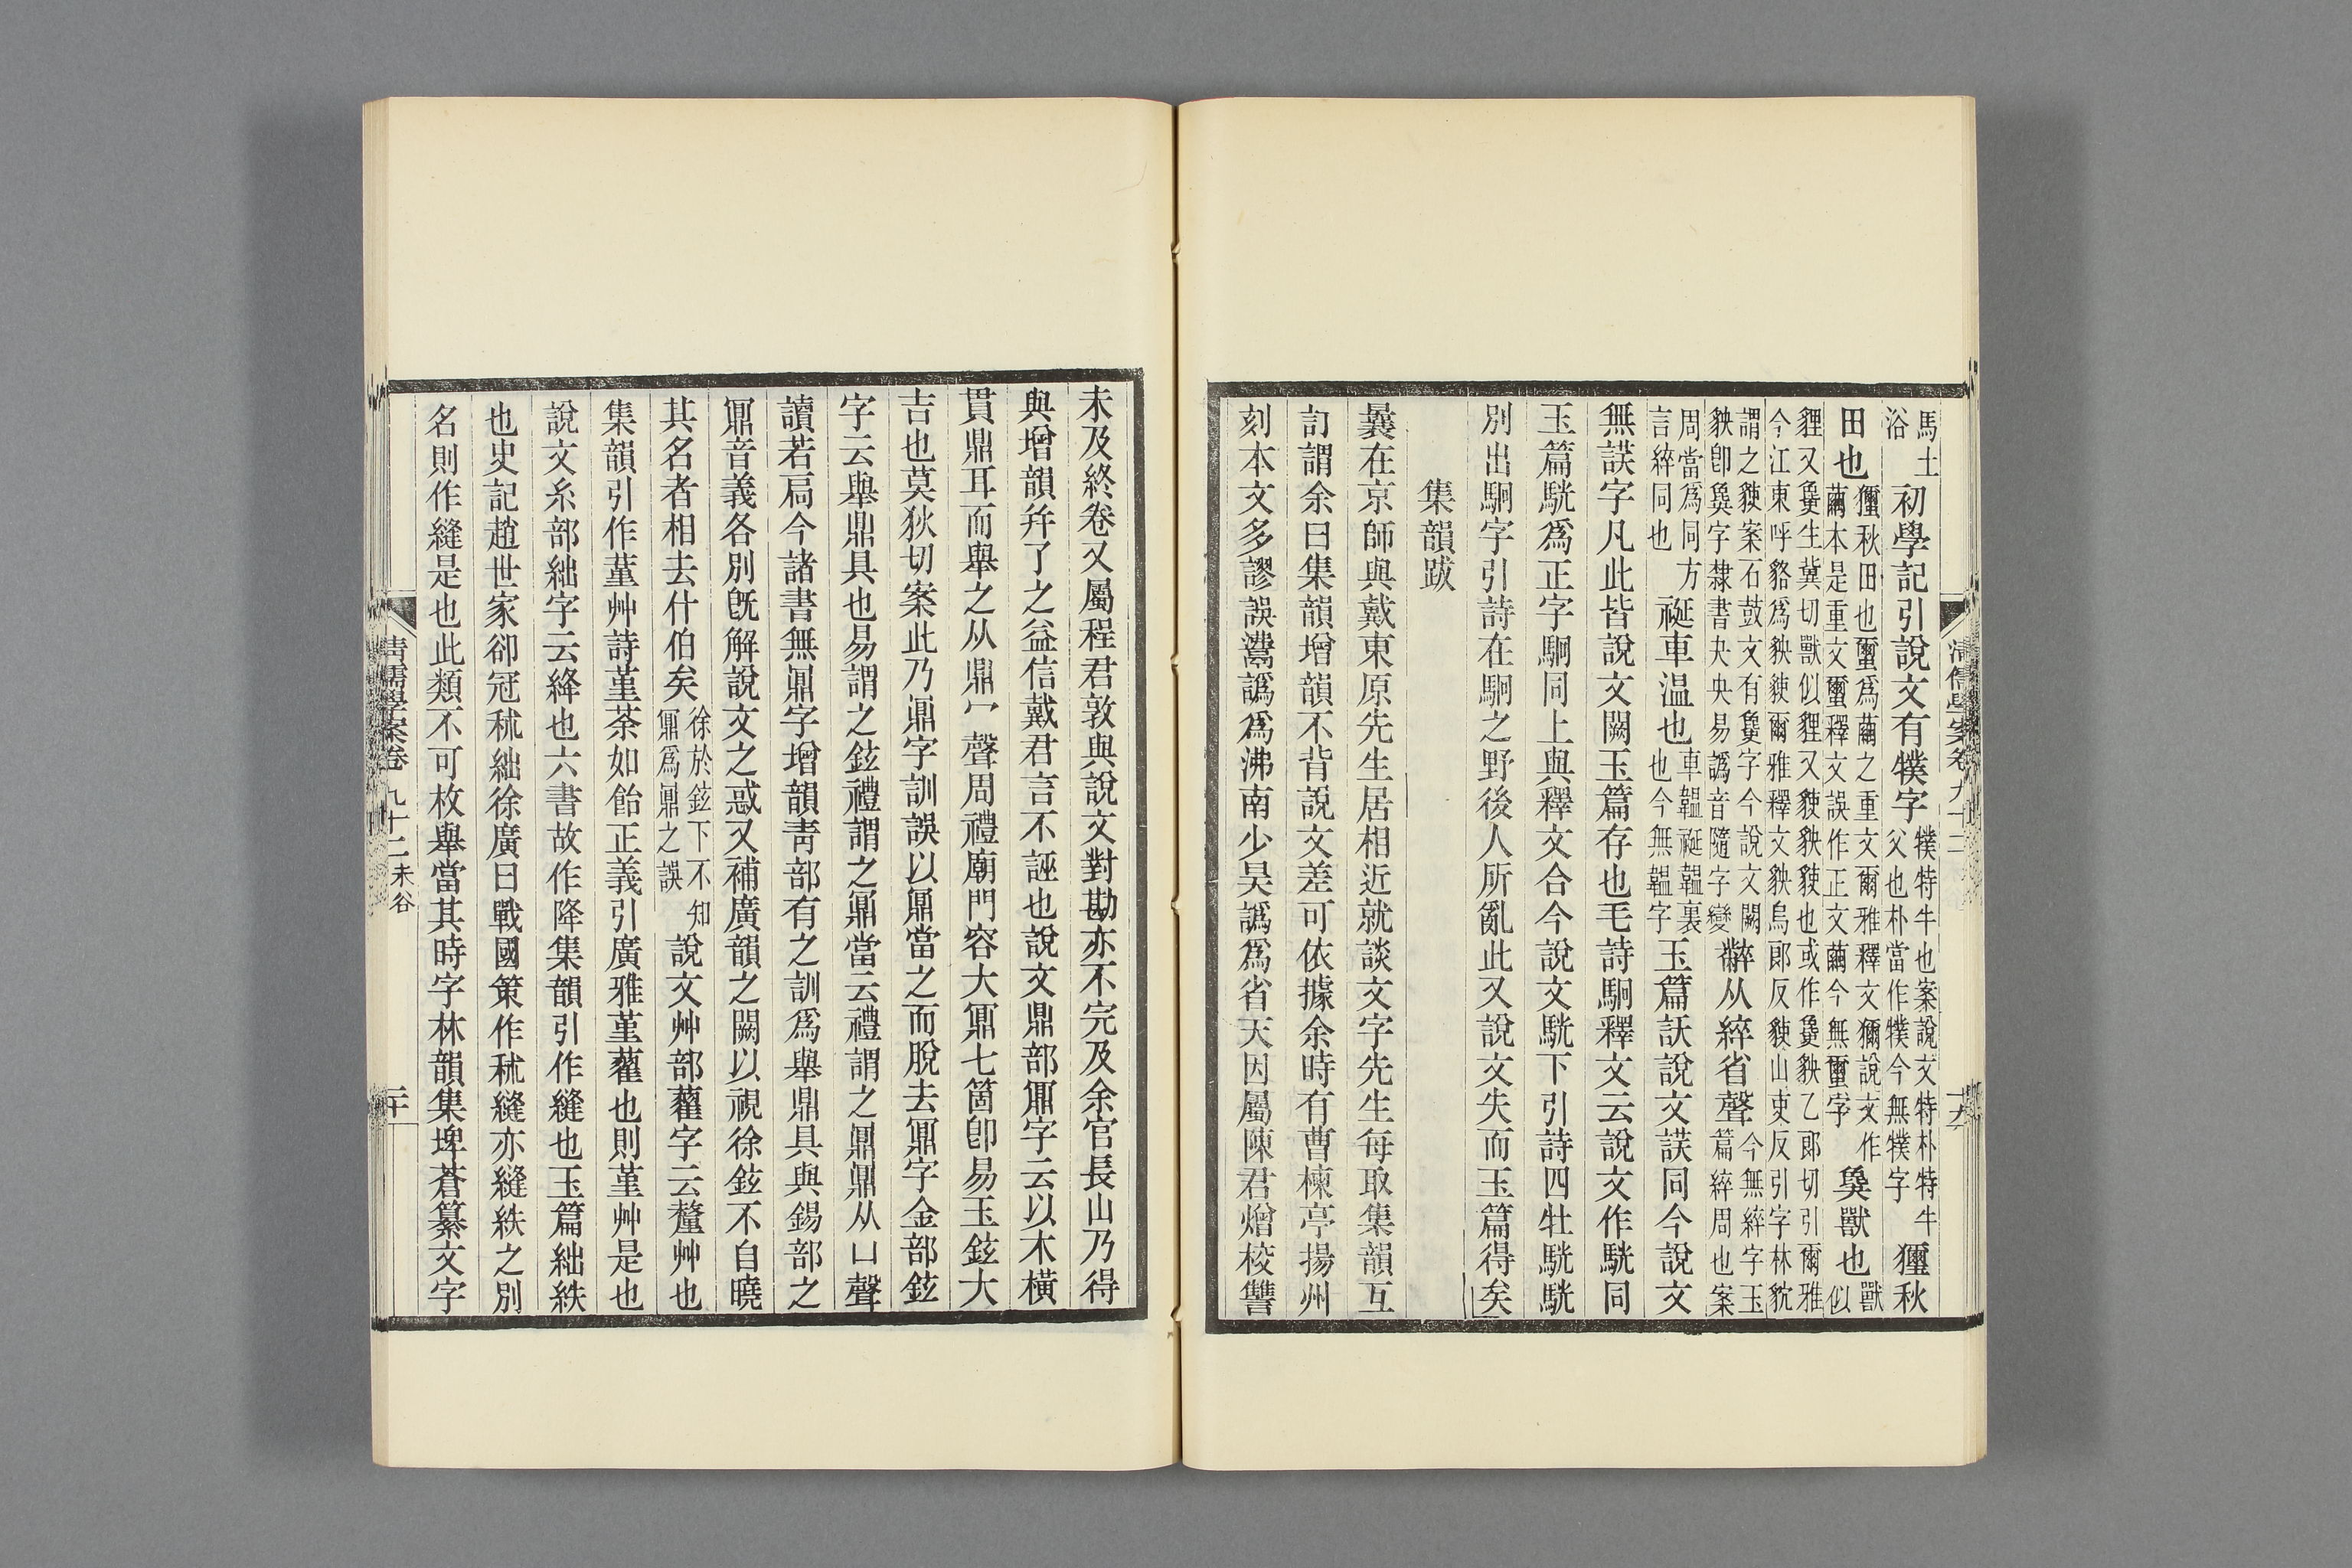 馬土
浴
初學記引說文有㹒字
㹒特牛也案說文特朴特牛
父也朴當作㹒今無㹒字
玀秋
田也
玀秋田也璽爲繭之重文爾雅釋文獮說文作
繭本是重文璽釋文誤作正文繭今無璽字
㚖獸也
獸
似
貍又㚖生冀切獸似貍又䝘䝘也或作㚖䝘乙郞切引爾雅
今江東呼貉爲䝘䝘爾雅釋文䝘烏郞反䝘山吏反引字林㹸
謂之䝘案石鼓文有㚖字今說文闕
䝘卽㚖字隸書夬央易譌音隨字變
䊫从綷省聲
今無綷字玉
篇綷周也案
周當爲同方
言綷同也
䡅車温也
車韞䡅韞裏
也今無韞字
玉篇訞說文䛢同今說文
無䛢字凡此皆說文闕玉篇存也毛詩駉釋文云說文作駫同
玉篇駫爲正字駉同上與釋文合今說文駫下引詩四牡駫駫
別出駉字引詩在駉之野後人所亂此又說文失而玉篇得矣
集韻跋
曩在京師與戴東原先生居相近就談文字先生每取集韻互
訂謂余曰集韻增韻不背說文差可依據余時有曹楝亭揚州
刻本文多謬誤灊譌爲沸南少吴譌爲省天因屬陳君熷校讐
未及終卷又屬程君敦與說文對勘亦不完及余官長山乃得
與增韻幷了之益信戴君言不誣也說文鼎部鼏字云以木橫
貫鼎耳而舉之从鼎冖聲周禮廟門容大鼏七箇卽易玉鉉大
吉也莫狄切案此乃鼏字訓誤以鼏當之而脫去鼏字金部鉉
字云舉鼎具也易謂之鉉禮謂之鼏當云禮謂之鼏鼏从冂聲
讀若扃今諸書無鼏字增韻靑部有之訓爲舉鼎具與錫部之
鼏音義各別旣解說文之惑又補廣韻之闕以視徐鉉不自曉
其名者相去什伯矣
徐於鉉下不知
鼏爲鼏之誤
說文艸部蘿字云釐艸也
集韻引作堇艸詩堇荼如飴正義引廣雅堇蘿也則堇艸是也
說文糸部絀字云絳也六書故作降集韻引作縫也玉篇絀紩
也史記趙世家卻冠秫絀徐廣曰戰國策作秫縫亦縫紩之別
名則作縫是也此類不可枚舉當其時字林韻集埤蒼纂文字
淸儒學案卷九十二未谷
二十